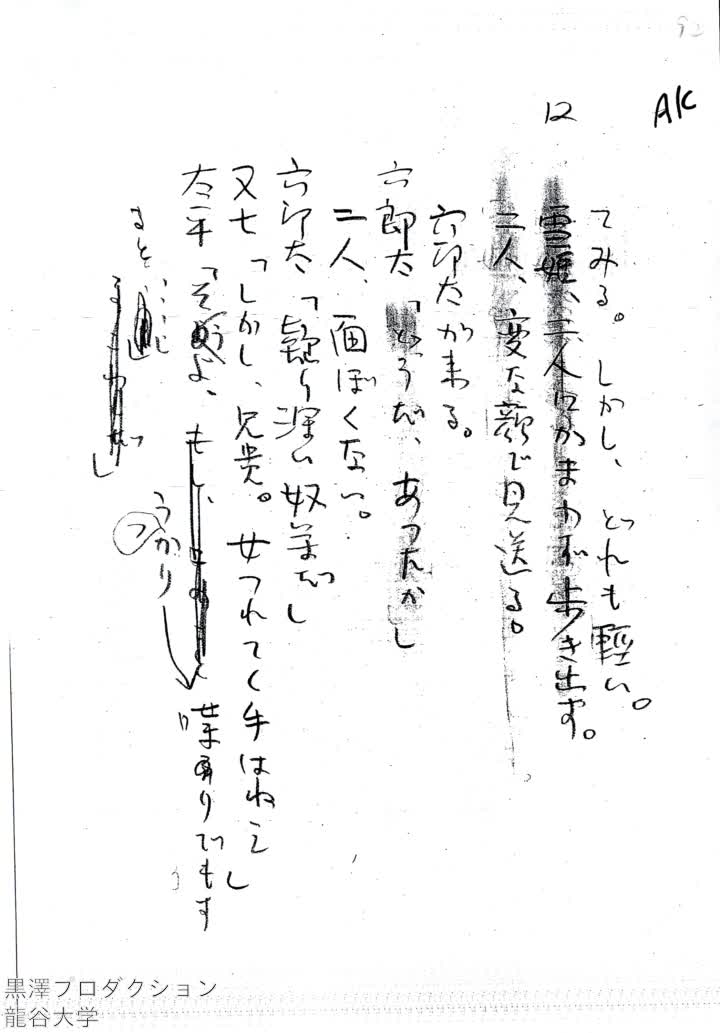 92
AK
12
てみる。しかし、どれも輕い。
雪姫、二人にかまわず歩き出す。
二人、変な顔で見送る。
六郎太が来る。
六郎太「どうだ、あつたか」
二人、面ぼくない。
六郎太「疑り深い奴等だ」
又七「しかし、兄貴。女つれてく手はねえ」
太平「そうよ、もし、うかり喋りでもす
ると……」
黒澤プロダクション
龍谷大学